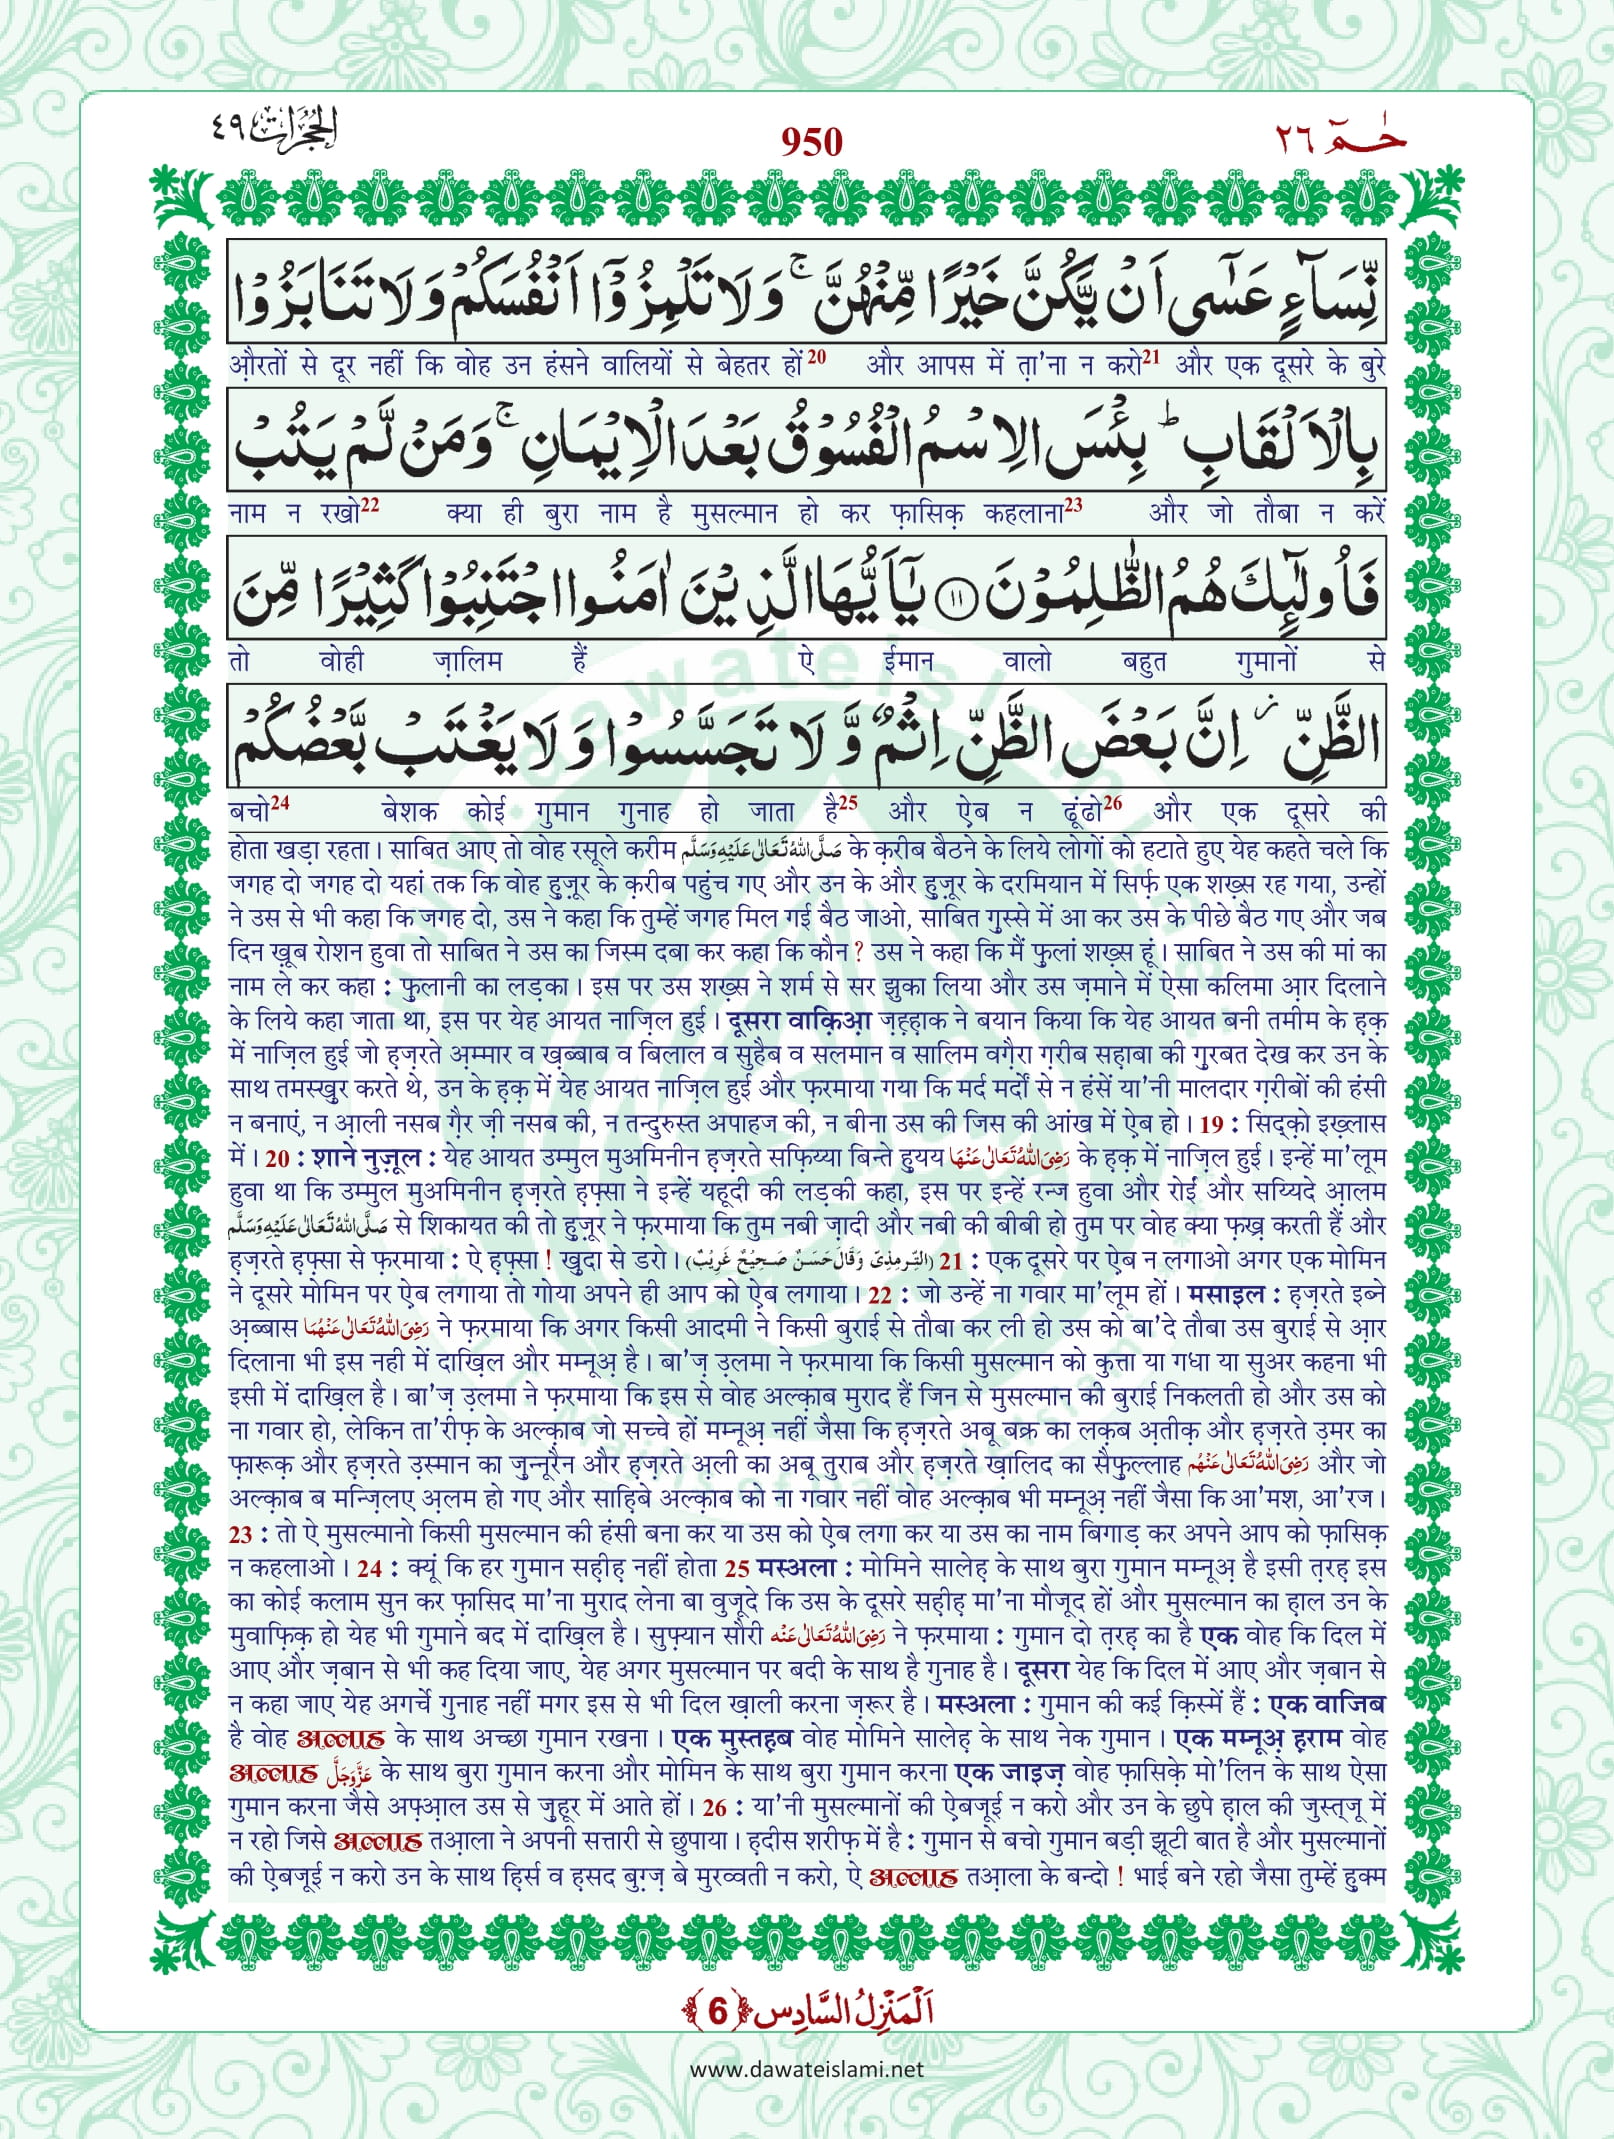 الحجرات ٤٩
950
حٰمٓ ٢٦
نِّسَآءٍ عَسٰۤى اَنْ یَّكُنَّ خَیْرًا مِّنْهُنَّ ۚ وَ لَا تَلْمِزُوْۤا اَنْفُسَكُمْ وَ لَا تَنَابَزُوْا
औ़रतों से दूर नहीं कि वोह उन हंसने वालियों से बेहतर हों20 और आपस में त़ा'ना न करो21 और एक दूसरे के बुरे
بِالْاَلْقَابِ ؕ بِئْسَ الِاسْمُ الْفُسُوْقُ بَعْدَ الْاِیْمَانِ ۚ وَ مَنْ لَّمْ یَتُبْ
नाम न रखो22 क्या ही बुरा नाम है मुसल्मान हो कर फ़ासिक़ कहलाना23 और जो तौबा न करें
فَاُولٰٓىٕكَ هُمُ الظّٰلِمُوْنَ ۝۱۱ یٰۤاَیُّهَا الَّذِیْنَ اٰمَنُوا اجْتَنِبُوْا كَثِیْرًا مِّنَ
तो वोही ज़ालिम हैं ऐ ईमान वालो बहुत गुमानों से
الظَّنِّ ؗ اِنَّ بَعْضَ الظَّنِّ اِثْمٌ وَّ لَا تَجَسَّسُوْا وَ لَا یَغْتَبْ بَّعْضُكُمْ
बचो24 बेशक कोई गुमान गुनाह हो जाता है25 और ऐब न ढूंढो26 और एक दूसरे की
होता खड़ा रहता। साबित आए तो वोह रसूले करीम صَلَّى اللهُ تَعَالٰى عَلَيْهِ وَسَلَّم के क़रीब बैठने के लिये लोगों को हटाते हुए येह कहते चले कि
जगह दो जगह दो यहां तक कि वोह हुज़ूर के क़रीब पहुंच गए और उन के और हुज़ूर के दरमियान में सिर्फ एक शख़्स रह गया, उन्हों
ने उस से भी कहा कि जगह दो, उस ने कहा कि तुम्हें जगह मिल गई बैठ जाओ, साबित ग़ुस्से में आ कर उस के पीछे बैठ गए और जब
दिन ख़ूब रोशन हुवा तो साबित ने उस का जिस्म दबा कर कहा कि कौन ? उस ने कहा कि मैं फुलां शख़्स हूं। साबित ने उस की मां का
नाम ले कर कहा : फुलानी का लड़का। इस पर उस शख़्स ने शर्म से सर झुका लिया और उस ज़माने में ऐसा कलिमा आ़र दिलाने
के लिये कहा जाता था, इस पर येह आयत नाज़िल हुई। दूसरा वाक़िआ़ ज़ह़्ह़ाक ने बयान किया कि येह आयत बनी तमीम के ह़क़
में नाज़िल हुई जो ह़ज़रते अ़म्मार व ख़ब्बाब व बिलाल व सुहैब व सलमान व सालिम वग़ैरा ग़रीब सह़ाबा की ग़ुरबत देख कर उन के
साथ तमस्ख़ुर करते थे, उन के ह़क़ में येह आयत नाज़िल हुई और फ़रमाया गया कि मर्द मर्दों से न हंसें या'नी मालदार ग़रीबों की हंसी
न बनाएं, न आ़ली नसब ग़ैर ज़ी नसब की, न तन्दुरुस्त अपाहज की, न बीना उस की जिस की आंख में ऐब हो। 19 : सिद्क़ो इख़्लास
में। 20 : शाने नुज़ूल : येह आयत उम्मुल मुअमिनीन ह़ज़रते सफ़िय्या बिन्ते हुयय رَضِىَ اللهُ تَعَالٰى عَنْهَا के ह़क़ में नाज़िल हुई। इन्हें मा'लूम
हुवा था कि उम्मुल मुअमिनीन ह़ज़रते ह़फ़्सा ने इन्हें यहूदी की लड़की कहा, इस पर इन्हें रन्ज हुवा और रोईं और सय्यिदे आ़लम
صَلَّى اللهُ تَعَالٰى عَلَيْهِ وَسَلَّم से शिकायत की तो हुज़ूर ने फ़रमाया कि तुम नबी ज़ादी और नबी की बीबी हो तुम पर वोह क्या फख़्र करती हैं और
ह़ज़रते ह़फ़्सा से फ़रमाया : ऐ ह़फ़्सा ! ख़ुदा से डरो। (التِّرمِذِىّ وَقَالَ حَسَنٌ صَحِيْحٌ غَرِيْبٌ) 21 : एक दूसरे पर ऐब न लगाओ अगर एक मोमिन
ने दूसरे मोमिन पर ऐब लगाया तो गोया अपने ही आप को ऐब लगाया। 22 : जो उन्हें ना गवार मा'लूम हों। मसाइल : ह़ज़रते इब्ने
अ़ब्बास رَضِىَ اللهُ تَعَالٰى عَنْهُمَا ने फ़रमाया कि अगर किसी आदमी ने किसी बुराई से तौबा कर ली हो उस को बा'दे तौबा उस बुराई से आ़र
दिलाना भी इस नही में दाख़िल और मम्नूअ़ है। बा'ज़ उ़लमा ने फ़रमाया कि किसी मुसल्मान को कुत्ता या गधा या सुअर कहना भी
इसी में दाख़िल है। बा'ज़ उ़लमा ने फ़रमाया कि इस से वोह अल्क़ाब मुराद हैं जिन से मुसल्मान की बुराई निकलती हो और उस को
ना गवार हो, लेकिन ता'रीफ़ के अल्क़ाब जो सच्चे हों मम्नूअ़ नहीं जैसा कि ह़ज़रते अबू बक्र का लक़ब अ़तीक़ और ह़ज़रते उ़मर का
फ़ारूक़ और ह़ज़रते उ़स्मान का ज़ुन्नूरैन और ह़ज़रते अ़ली का अबू तुराब और ह़ज़रते ख़ालिद का सैफ़ुल्लाह رَضِىَ اللهُ تَعَالٰى عَنْهُم और जो
अल्क़ाब ब मन्ज़िलए अ़लम हो गए और साहि़बे अल्क़ाब को ना गवार नहीं वोह अल्क़ाब भी मम्नूअ़ नहीं जैसा कि आ'मश, आ'रज।
23 : तो ऐ मुसल्मानो किसी मुसल्मान की हंसी बना कर या उस को ऐब लगा कर या उस का नाम बिगाड़ कर अपने आप को फ़ासिक़
न कहलाओ। 24 : क्यूं कि हर गुमान सह़ीह़ नहीं होता 25 मस्अला : मोमिने सालेह़ के साथ बुरा गुमान मम्नूअ़ है इसी त़रह़ इस
का कोई कलाम सुन कर फ़ासिद मा'ना मुराद लेना बा वुजूदे कि उस के दूसरे सह़ीह़ मा'ना मौजूद हों और मुसल्मान का ह़ाल उन के
मुवाफ़िक़ हो येह भी गुमाने बद में दाख़िल है। सुफ़्यान सौरी رَضِىَ اللهُ تَعَالٰى عَنْه ने फ़रमाया : गुमान दो त़रह़ का है एक वोह कि दिल में
आए और ज़बान से भी कह दिया जाए, येह अगर मुसल्मान पर बदी के साथ है गुनाह है। दूसरा येह कि दिल में आए और ज़बान से
न कहा जाए येह अगर्चे गुनाह नहीं मगर इस से भी दिल ख़ाली करना ज़रूर है। मस्अला : गुमान की कई क़िस्में हैं : एक वाजिब
है वोह अल्लाह के साथ अच्छा गुमान रखना। एक मुस्तह़ब वोह मोमिने सालेह़ के साथ नेक गुमान। एक मम्नूअ़ ह़राम वोह
अल्लाह عَزَّوَجَلَّ के साथ बुरा गुमान करना और मोमिन के साथ बुरा गुमान करना एक जाइज़ वोह फ़ासिक़े मो'लिन के साथ ऐसा
गुमान करना जैसे अफ़्आ़ल उस से ज़ुहूर में आते हों। 26 : या'नी मुसल्मानों की ऐबजूई न करो और उन के छुपे ह़ाल की जुस्त्जू में
न रहो जिसे अल्लाह तआ़ला ने अपनी सत्तारी से छुपाया। ह़दीस शरीफ़ में है : गुमान से बचो गुमान बड़ी झूटी बात है और मुसल्मानों
की ऐबजूई न करो उन के साथ ह़िर्स व ह़सद बुग़्ज़ बे मुरव्वती न करो, ऐ अल्लाह तआ़ला के बन्दो ! भाई बने रहो जैसा तुम्हें हुक्म
اَلْمَنْزِلُ السَّادِس ﴿6﴾
www.dawateislami.net